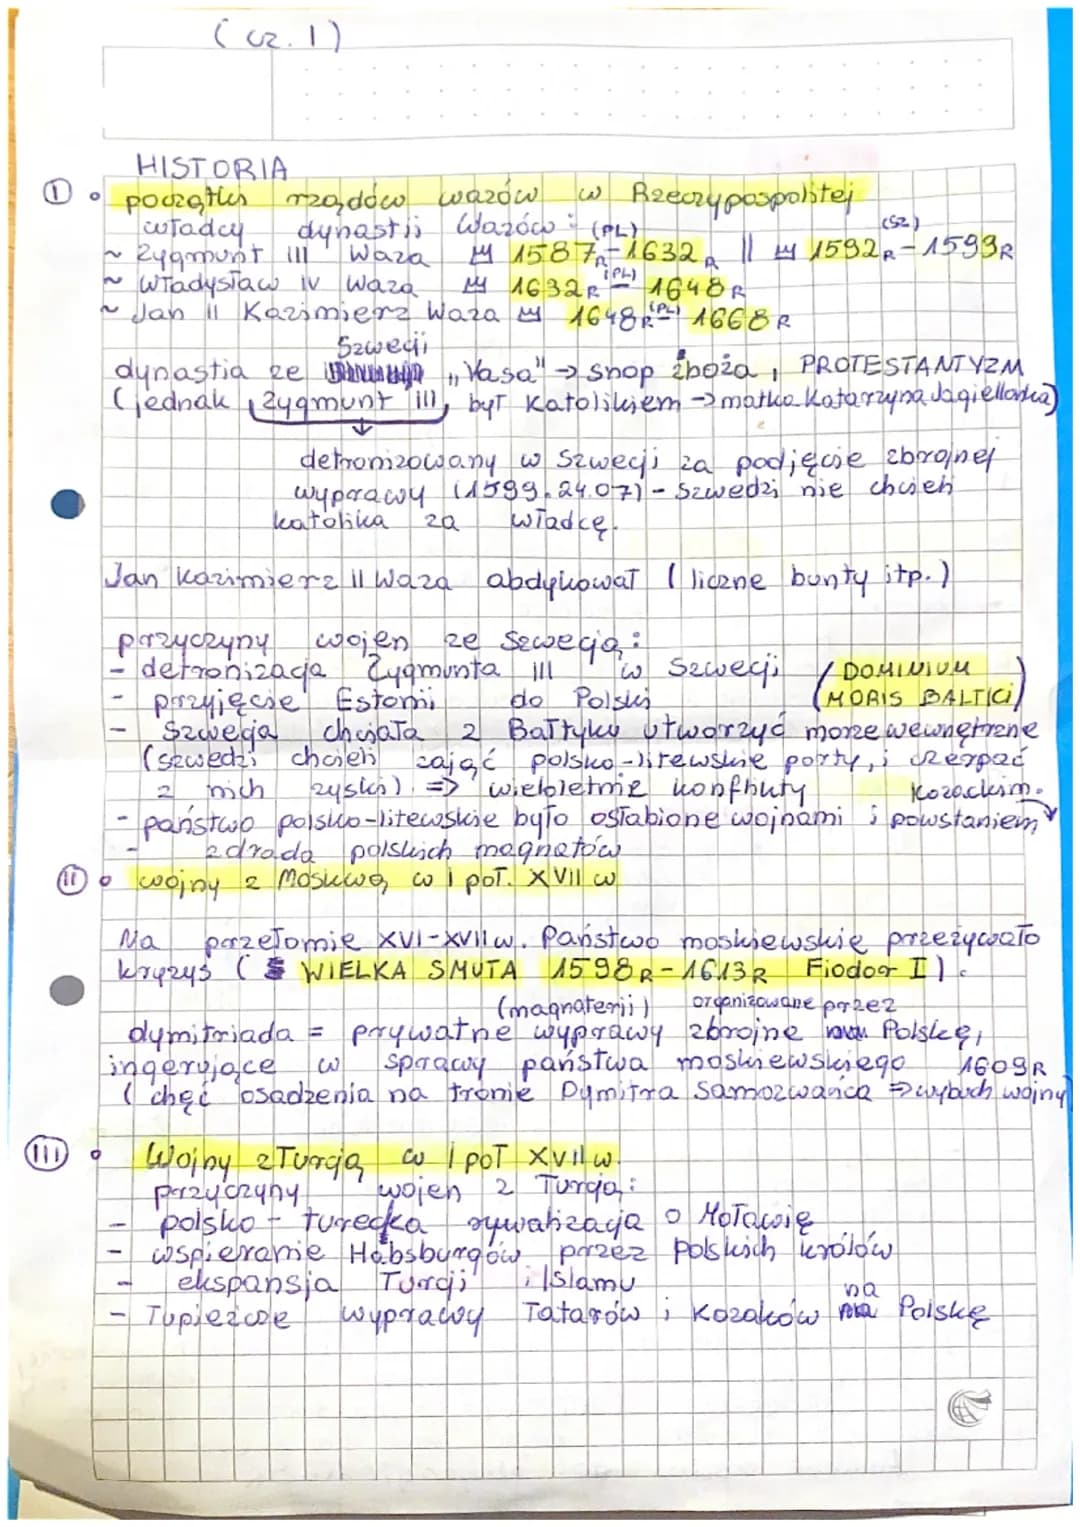 (cz. 1)
HISTORIA
I • początki rządów wazów w Rzeczypospolitej
władcy dynastii Wazów: (PL) (SZ)
~ Zygmunt III Waza 1587R-1632R || 1592R-1599R
~ Władysław IV Waza 1632R (PL) - 1648R
~ Jan II Kazimierz Waza 1648R (PL) - 1668R
dynastia ze Szwecji „Vasa" → snop zboża, PROTESTANTYZM
(jednak Zygmunt III, był katolikiem → matka Katarzyna Jagiellonka)
↓
detronizowany w Szwecji za podjęcie zbrojnej
wyprawy (1599.24.07) - Szwedzi nie chcieli
katolika za władcę.
Jan Kazimierz II Waza abdykował (liczne bunty itp.)
przyczyny wojen ze Szwecją:
- detronizacja Zygmunta III w Szwecji (DOMINIUM
- przyjęcie Estonii do Polski MORIS BALTICI)
- Szwecja chciała z Bałtyku utworzyć morze wewnętrzne
(szwedzi chcieli zająć polsko-litewskie porty, i czerpać
z nich zyski). => wieloletnie konflikty
- państwo polsko-litewskie było osłabione wojnami i powstaniem kozackim.
- zdrada polskich magnatów
II • wojny z Moskwą w I poł. XVII w
Na przełomie XVI-XVII w. Państwo moskiewskie przeżywało
kryzys (WIELKA SMUTA 1598R-1613R Fiodor I).
(magnaterii) organizowane przez
dymitriada = prywatne wyprawy zbrojne Polskę,
ingerujące w sprawy państwa moskiewskiego 1609R
(chęć osadzenia na tronie Dymitra Samozwańca => wybuch wojny
III • Wojny z Turcją w I poł XVII w.
przyczyny wojen z Turcją:
- polsko-turecka rywalizacja o Mołdawię
- wspieranie Habsburgów przez polskich królów
- ekspansja Turcji i Islamu
- Łupieżcze wyprawy Tatarów i Kozaków na Polskę